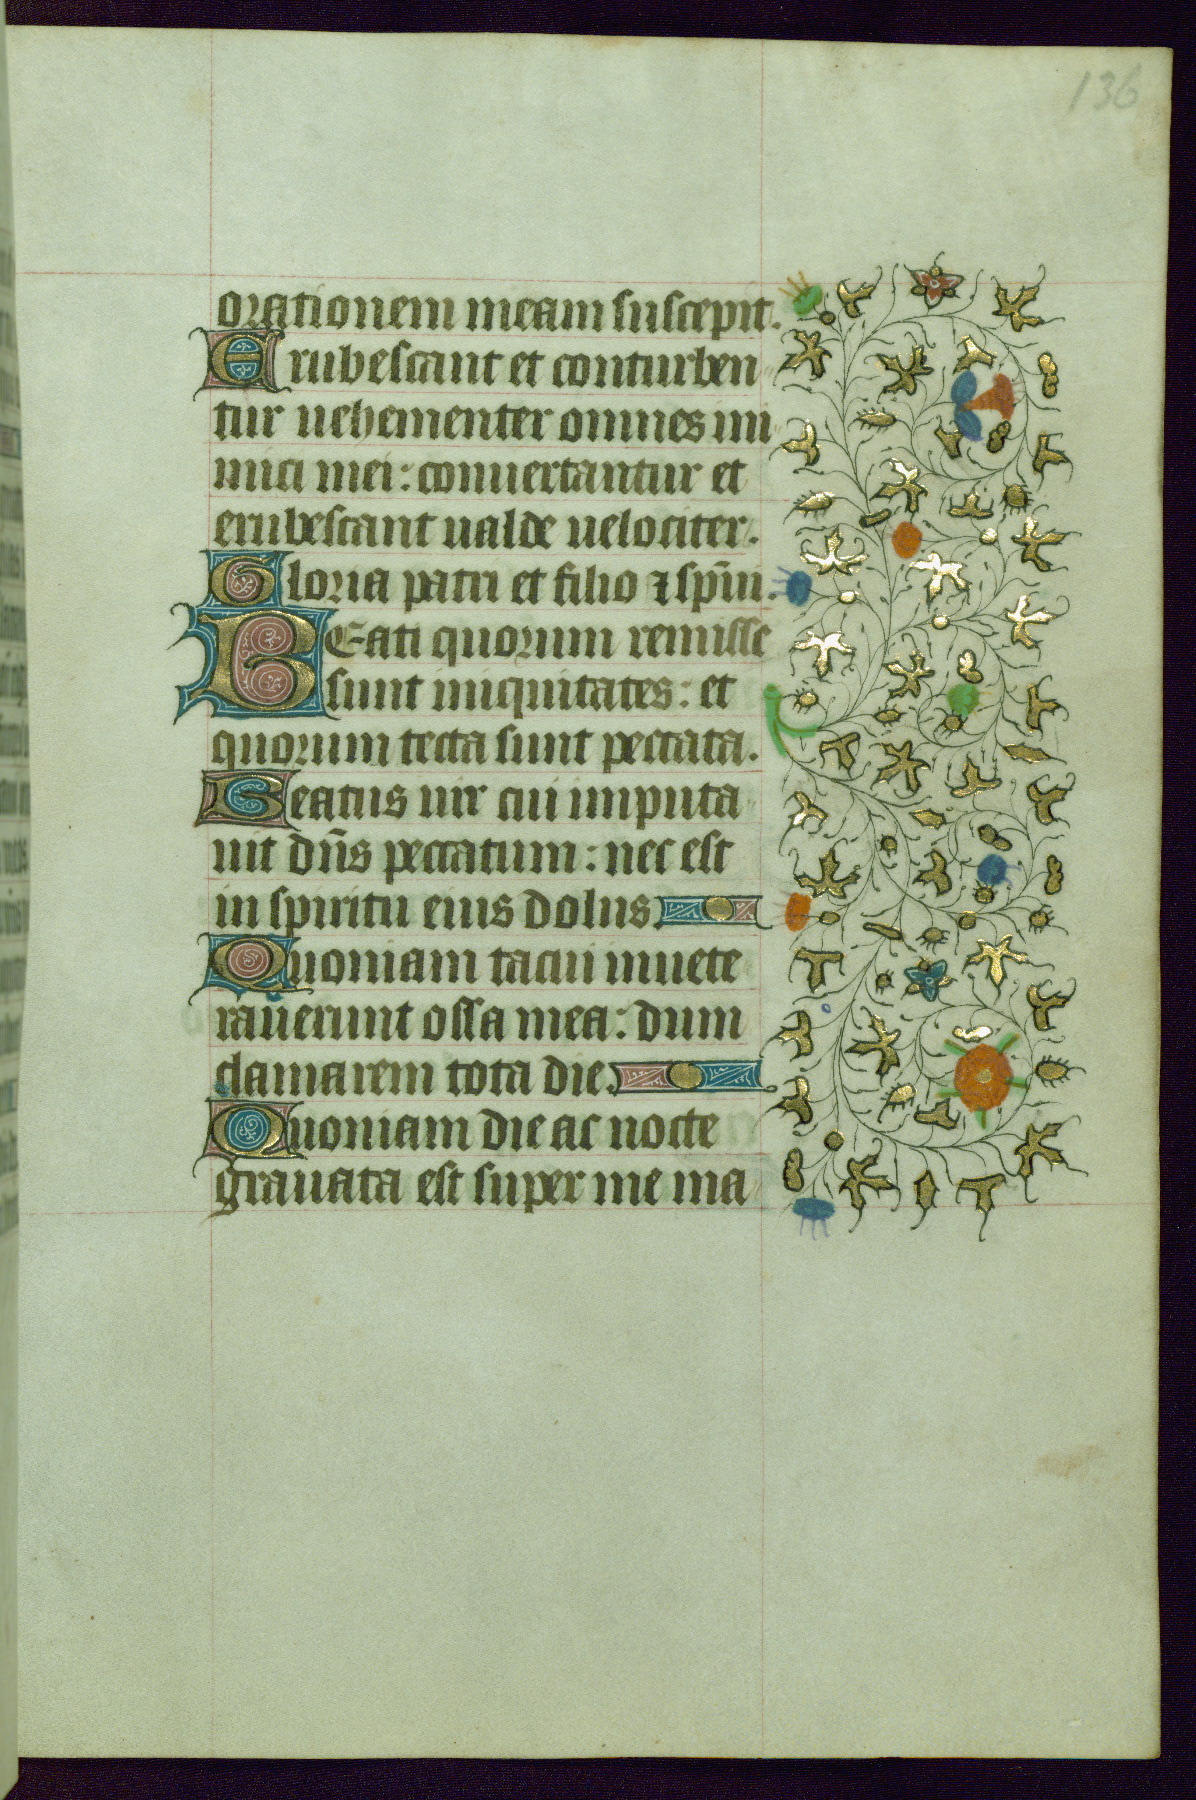 136
orationem meam suscepit.
Erubescant et conturben
tur uehementer omnes ini
mici mei: conuertantur et
erubescant ualde uelociter.
Gloria patri et filio ⁊ sp̄ui.
BEati quorum remisse
sunt iniquitates: et
quorum tecta sunt peccata.
Beatus uir cui imputa
uit dn̄s peccatum: nec est
in spiritu eius dolus.
Quoniam tacui inuete
rauerunt ossa mea: dum
clamarem tota die.
Quoniam die ac nocte
grauata est super me ma